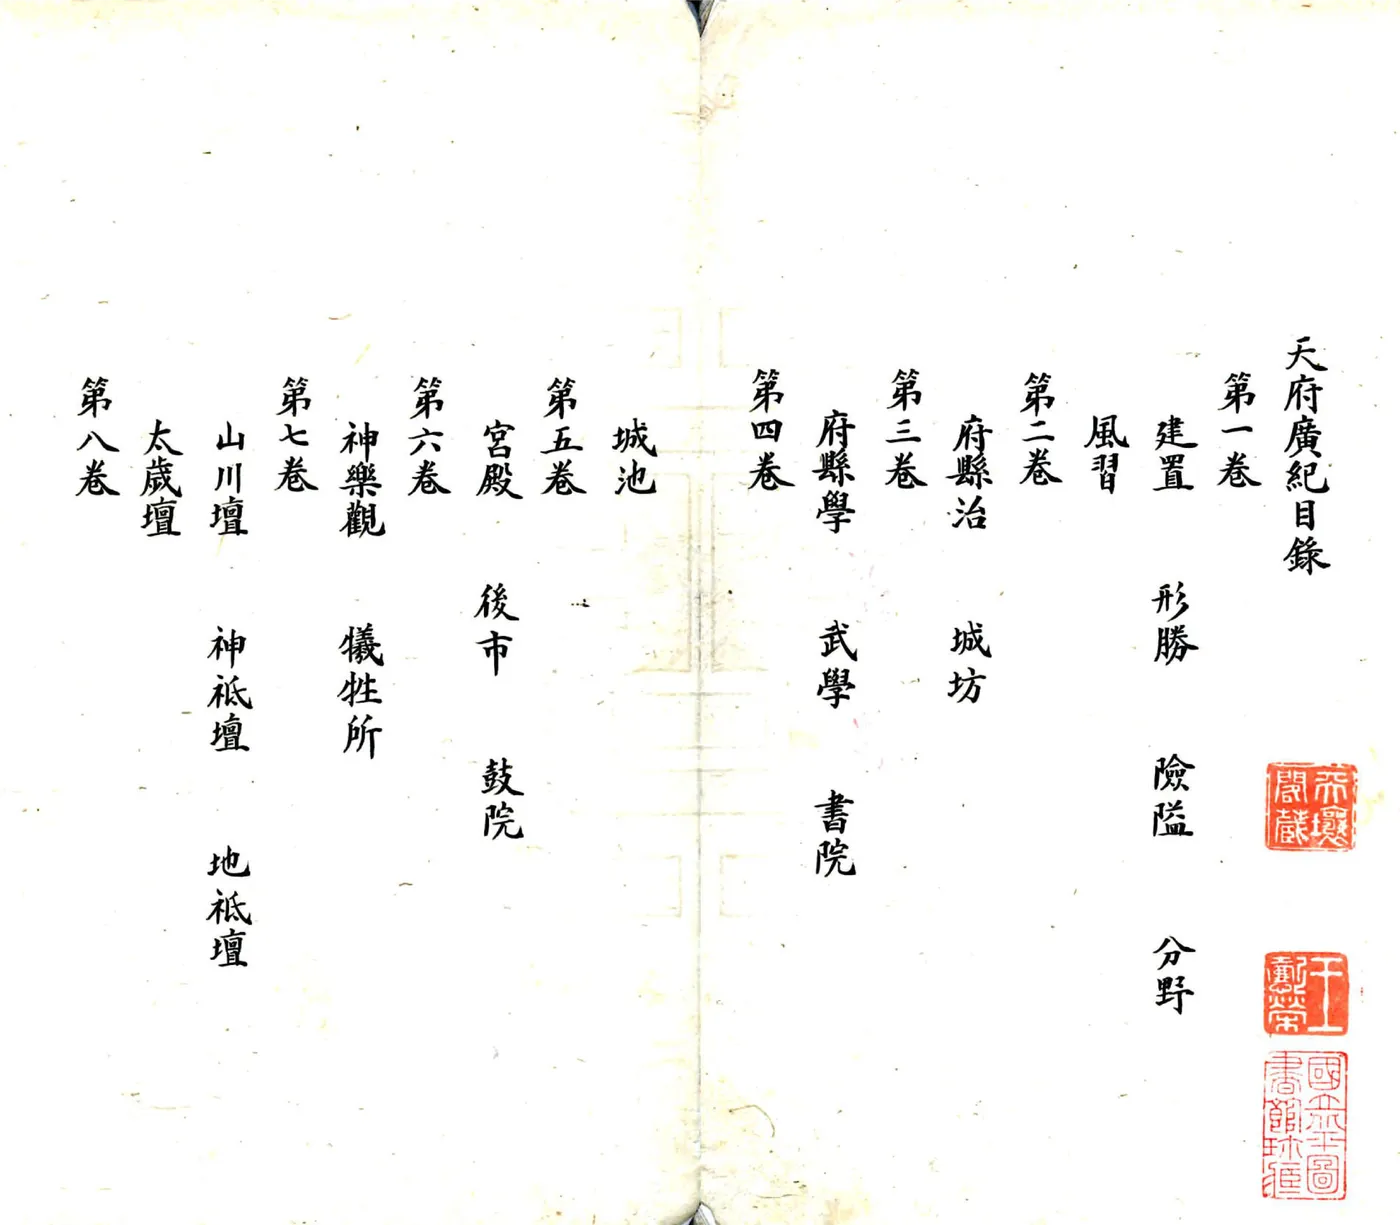 天府廣紀目錄
第一卷
建置 形勝 險隘 分野
風習
第二卷
府縣治 城坊
第三卷
府縣學 武學 書院
第四卷
城池
第五卷
宮殿 後市 鼓院
第六卷
神樂觀 犧牲所
第七卷
山川壇 神祇壇 地祇壇
太歲壇
第八卷
天壤閣藏
國立北平圖書館珍藏